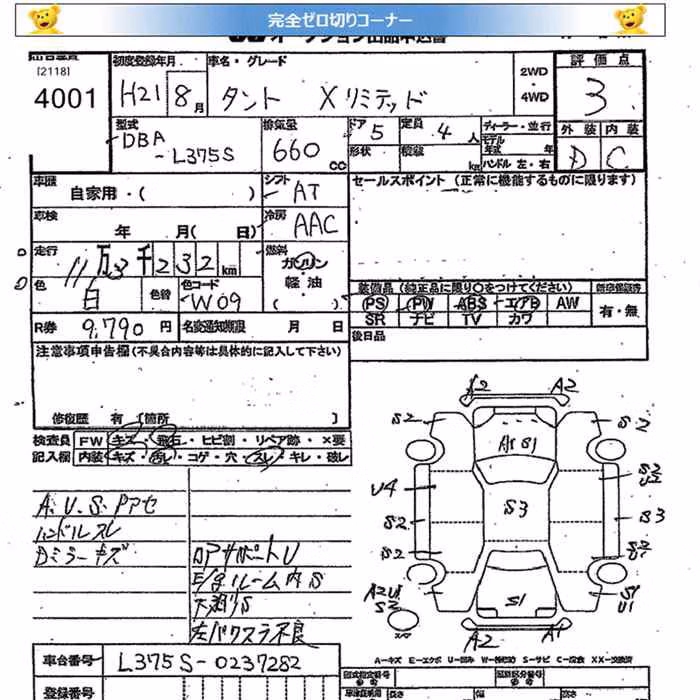 完全ゼロ切りコーナー
オークション出品申込書
(2118)
4001
初度登録年月
H21 8月
車名・グレード
タント Xリミテッド
2WD
・
4WD
評価点
3
外装 内装
D C
型式
DBA
-L375S
排気量
660 cc
ドア 5
形状
定員 4人
積載 kg
ディーラー・並行
モデル年式 年
ハンドル 左・右
車歴
自家用・( )
シフト
AT
セールスポイント (正常に機能するものに限ります)
車検
年 月( 日)
冷房
AAC
走行
11万3千232km
燃料
ガソリン
・
軽油
色
白
色替
色コード
W09
装備品(純正品に限り○をつけてください)
PS PW ABS エアB AW
SR ナビ TV カワ
有・無
R券 9,790円
名変通知期限 月 日
後日品
注意事項申告欄(不具合内容等は具体的に記入して下さい)
修復歴 有 [箇所 ]
検査員 FW キズ・飛石・ヒビ割・リペア跡・×要
記入欄 内装 キズ・汚レ・コゲ・穴・スレ・キレ・破レ
A.U.S.Pアセ
ハンドルスレ
Dミラーキズ
ロアサポートU
E/gルーム内S
下廻りS
左バックステー不良
A2
S2
S2
A1 S1
S2
U2
U4
S3
S3
S2
S2
S2
U1
A2U1
S2
S1
S1
U1
A2
A1
A-キズ E-エクボ U-凹み W-補修跡 S-サビ C-腐食 XX-交換済
車台番号 L375S-0237282
登録番号